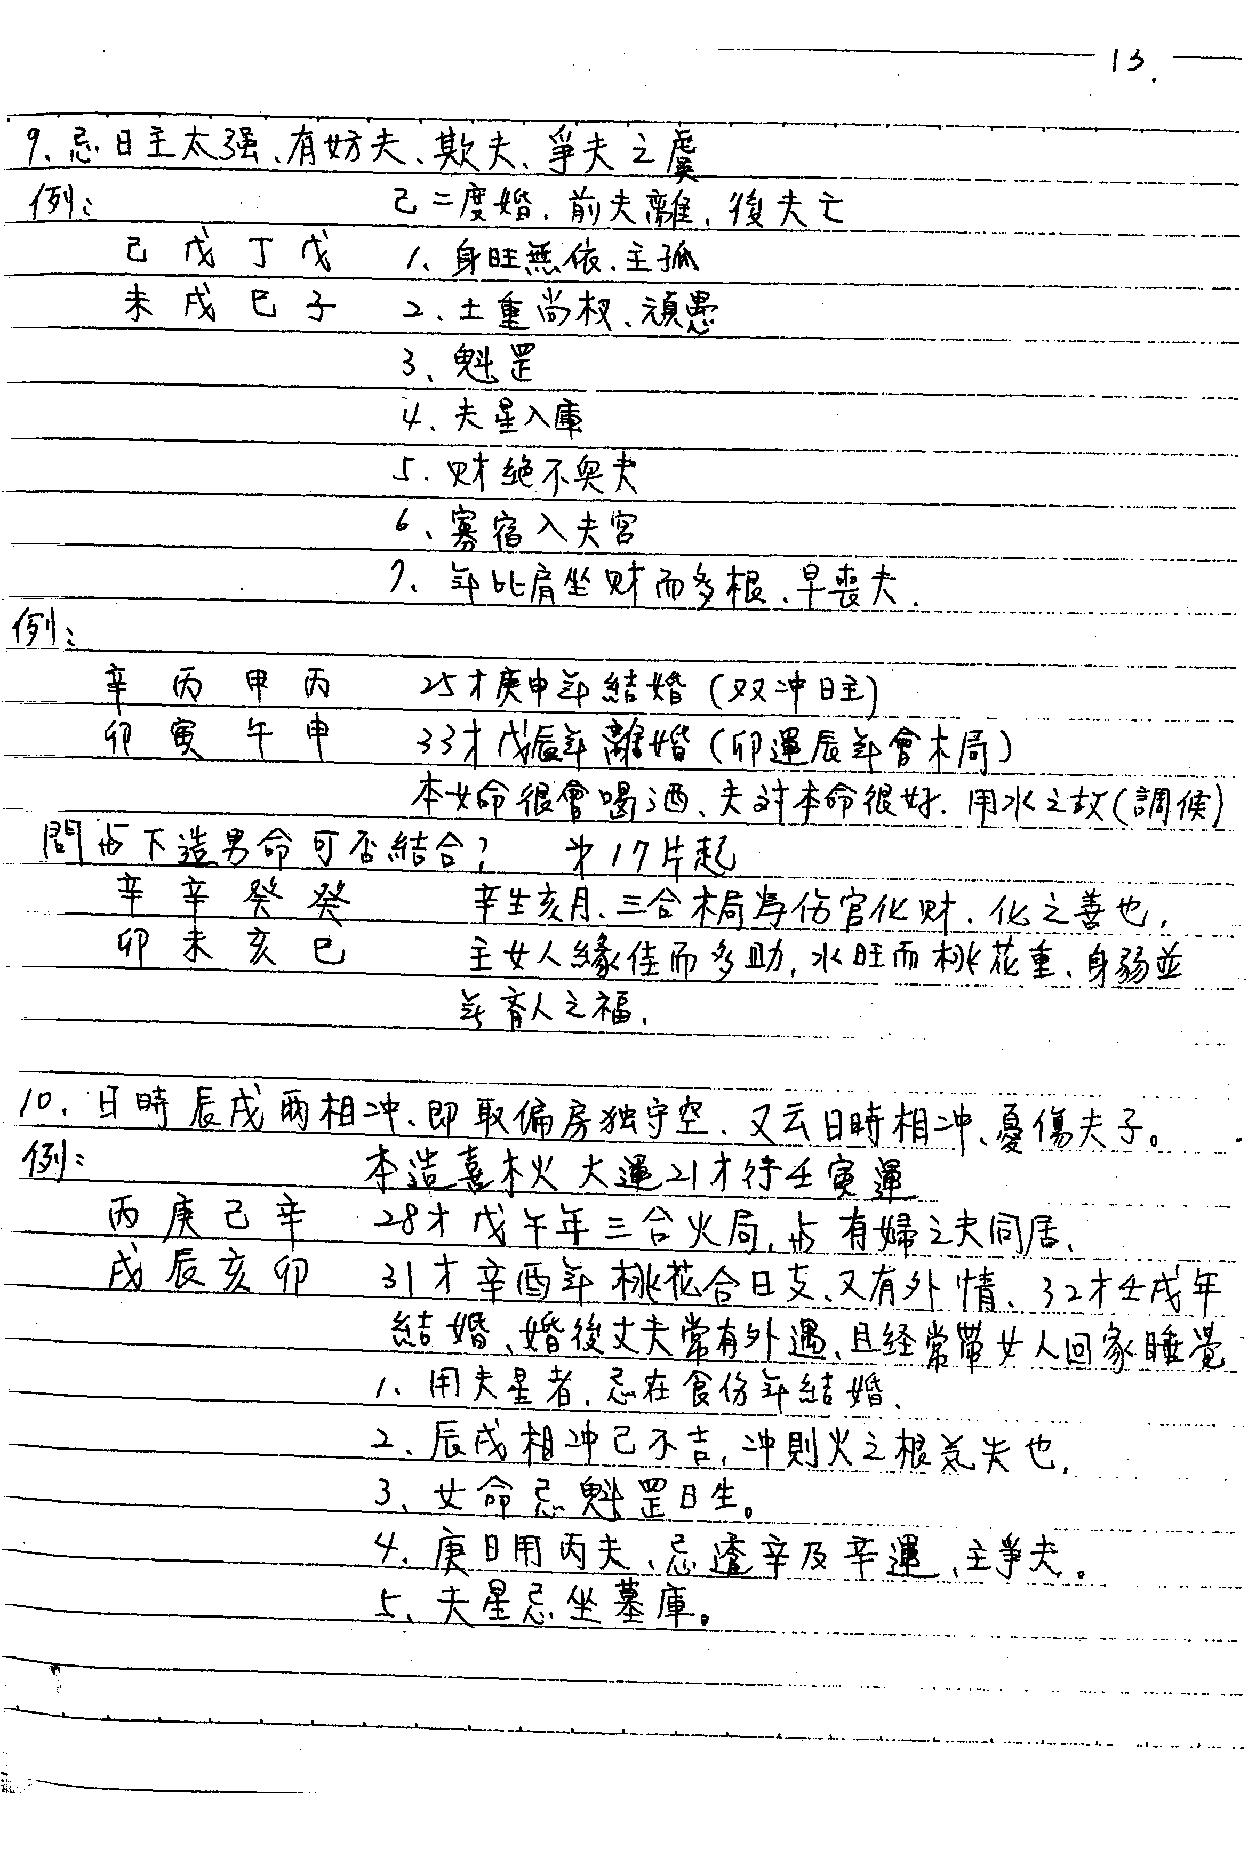 13.
9、忌日主太强、有妨夫、欺夫、爭夫之虞
例： 己二度婚、前夫離、後夫亡
己 戊 丁 戊 1、身旺無依、主孤
未 戌 巳 子 2、土重尚权、頑愚
3、魁罡
4、夫星入庫
5、财絶不興夫
6、寡宿入夫宮
7、年比肩坐财而多根、早喪夫、
例：
辛 丙 甲 丙 25才庚申年結婚(双冲日主)
卯 寅 午 申 33才戊辰年離婚(卯運辰年會木局)
本女命很會喝酒、夫对本命很好、用水之故(調候)
問与下造男命可否結合? 第17片起
辛 辛 癸 癸 辛生亥月、三合木局為伤官化财、化之善也,
卯 未 亥 巳 主女人緣佳而多助、水旺而桃花重、身弱並
無育人之福、
10、日時辰戌兩相冲、即取偏房独守空、又云日時相冲、憂傷夫子。
例： 本造喜木火 大運21才行壬寅運
丙 庚 己 辛 28才戊午年三合火局,与有婦之夫同居、
戌 辰 亥 卯 31才辛酉年桃花合日支、又有外情、32才壬戌年
結婚、婚後丈夫常有外遇、且经常帶女人回家睡覺
1、用夫星者、忌在食伤年結婚、
2、辰戌相冲已不吉,冲則火之根氣失也,
3、女命忌魁罡日生。
4、庚日用丙夫、忌透辛及辛運、主爭夫。
5、夫星忌坐墓庫。